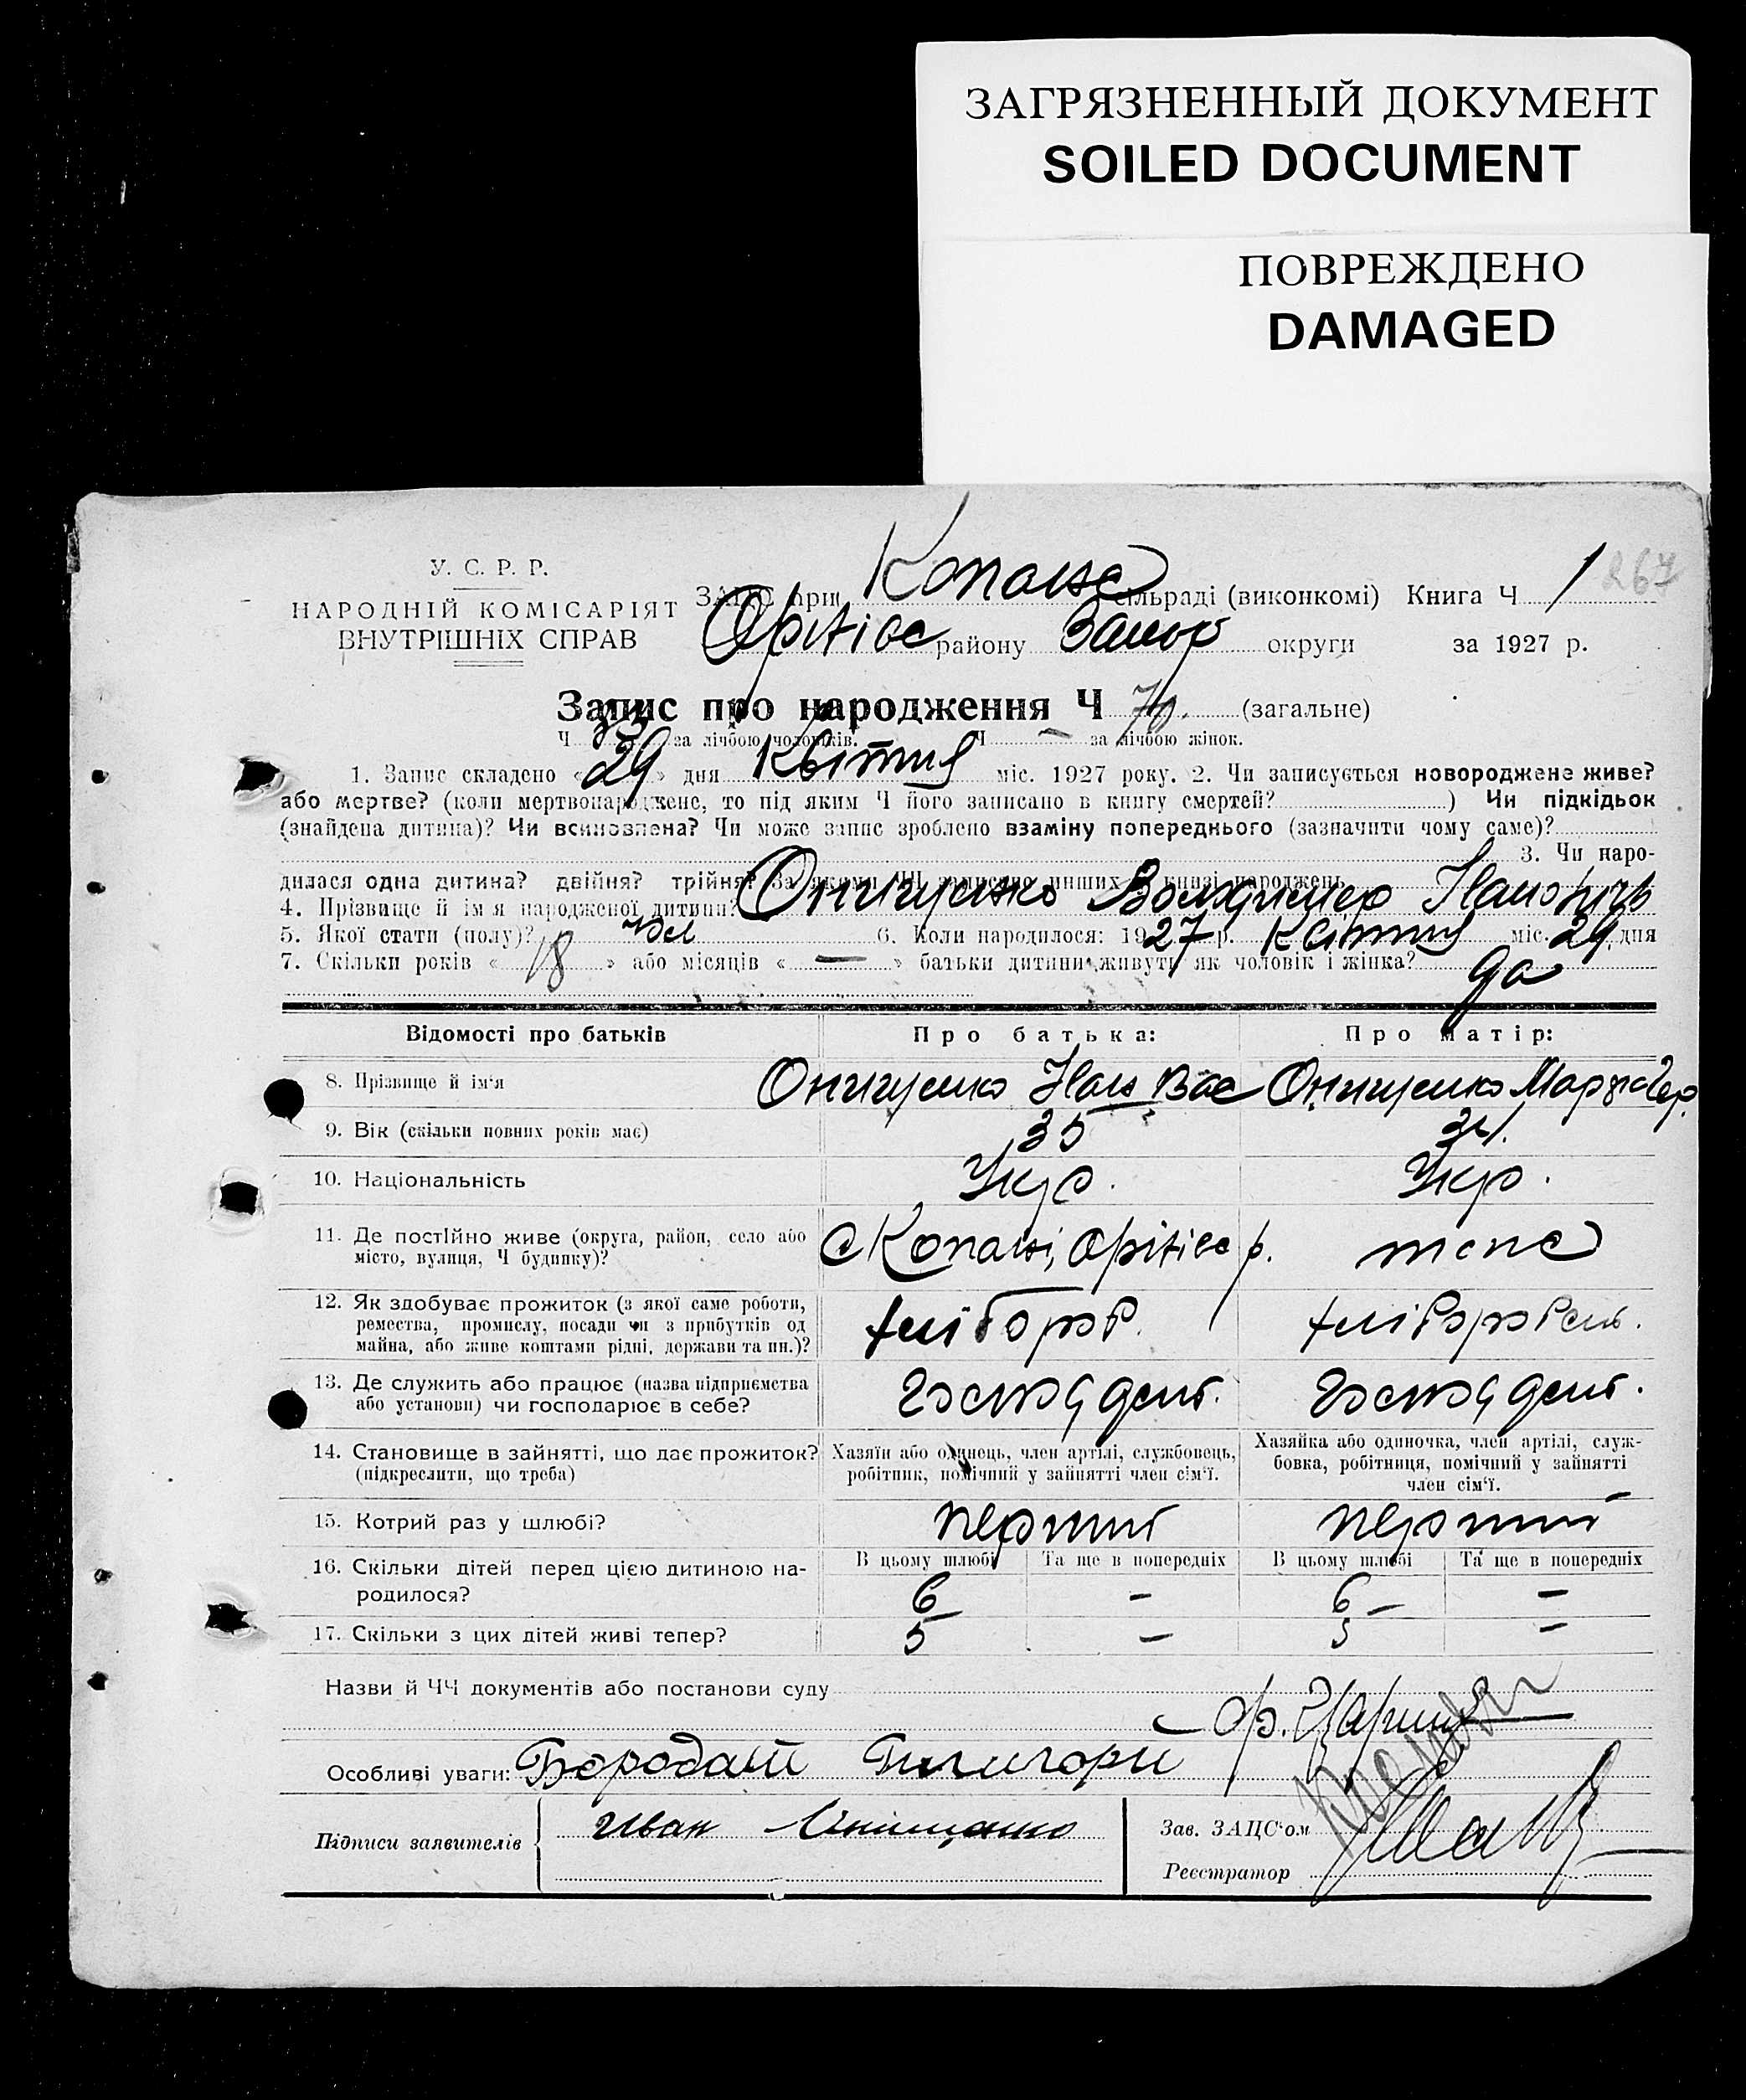 ЗАГРЯЗНЕННЫЙ ДОКУМЕНТ
SOILED DOCUMENT
ПОВРЕЖДЕНО
DAMAGED
267
У. С. Р. Р.
НАРОДНІЙ КОМІСАРІЯТ
ВНУТРІШНІХ СПРАВ
ЗАГС при Копанс сільраді (виконкомі) Книга Ч 1
Оріхівс району Запор округи за 1927 р.
Запис про народження Ч (загальне)
Ч 33 за лічбою чоловіків. Ч — за лічбою жінок.
1. Запис складено « 29 » дня Квітня міс. 1927 року. 2. Чи записується новороджене живе?
або мертве? (коли мертвонароджене, то під яким Ч його записано в книгу смертей? ) Чи підкідьок
(знайдена дитина)? Чи всиновлена? Чи може запис зроблено взаміну попереднього (зазначити чому саме)?
3. Чи наро-
дилася одна дитина? двійня? трійня? За якими ЧЧ записано инших в книзі народжень
4. Прізвище й ім'я народженої дитини? Онищенко Володимер Іванович
5. Якої стати (полу)? Чол 6. Коли народилося: 1927 р. Квітня міс. 29 дня
7. Скільки років « 18 » або місяців « — » батьки дитини живуть як чоловік і жінка? да
Відомості про батьків Про батька: Про матір:
8. Прізвище й ім'я Онищенко Іван Вас Онищенко
9. Вік (скільки повних років має) 35 34.
10. Національність Укр. Укр.
11. Де постійно живе (округа, район, село або С Копані, Оріхівс р. тспс
місто, вулиця, Ч будинку)?
12. Як здобуває прожиток (з якої саме роботи, хлібороб. хлібороbень.
ремества, промислу, посади чи з прибутків од
майна, або живе коштами рідні, держави та ин.)?
13. Де служить або працює (назва підприємства
або установи) чи господарює в себе?
14. Становище в зайнятті, що дає прожиток? Хазяїн або одинець, член артілі, службовець, Хазяйка або одиночка, член артілі, служ-
(підкреслити, що треба) робітник, помічний у зайнятті член сім'ї. бовка, робітниця, помічний у зайнятті
член сім'ї.
15. Котрий раз у шлюбі? перший перший
16. Скільки дітей перед цією дитиною на- В цьому шлюбі Та ще в попередніх В цьому шлюбі Та ще в попередніх
родилося? 6 — 6 —
17. Скільки з цих дітей живі тепер? 5 — 5 —
Назви й ЧЧ документів або постанови суду
Особливі уваги: Бородати
Підписи заявителів Иван Онищенко Зав. ЗАЦС'ом
Реєстратор